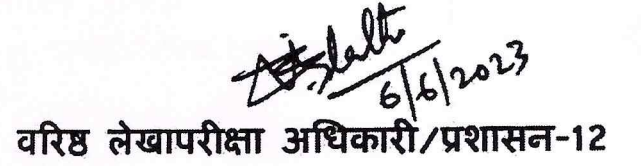 6/6/2023
वरिष्ठ लेखापरीक्षा अधिकारी/प्रशासन-12